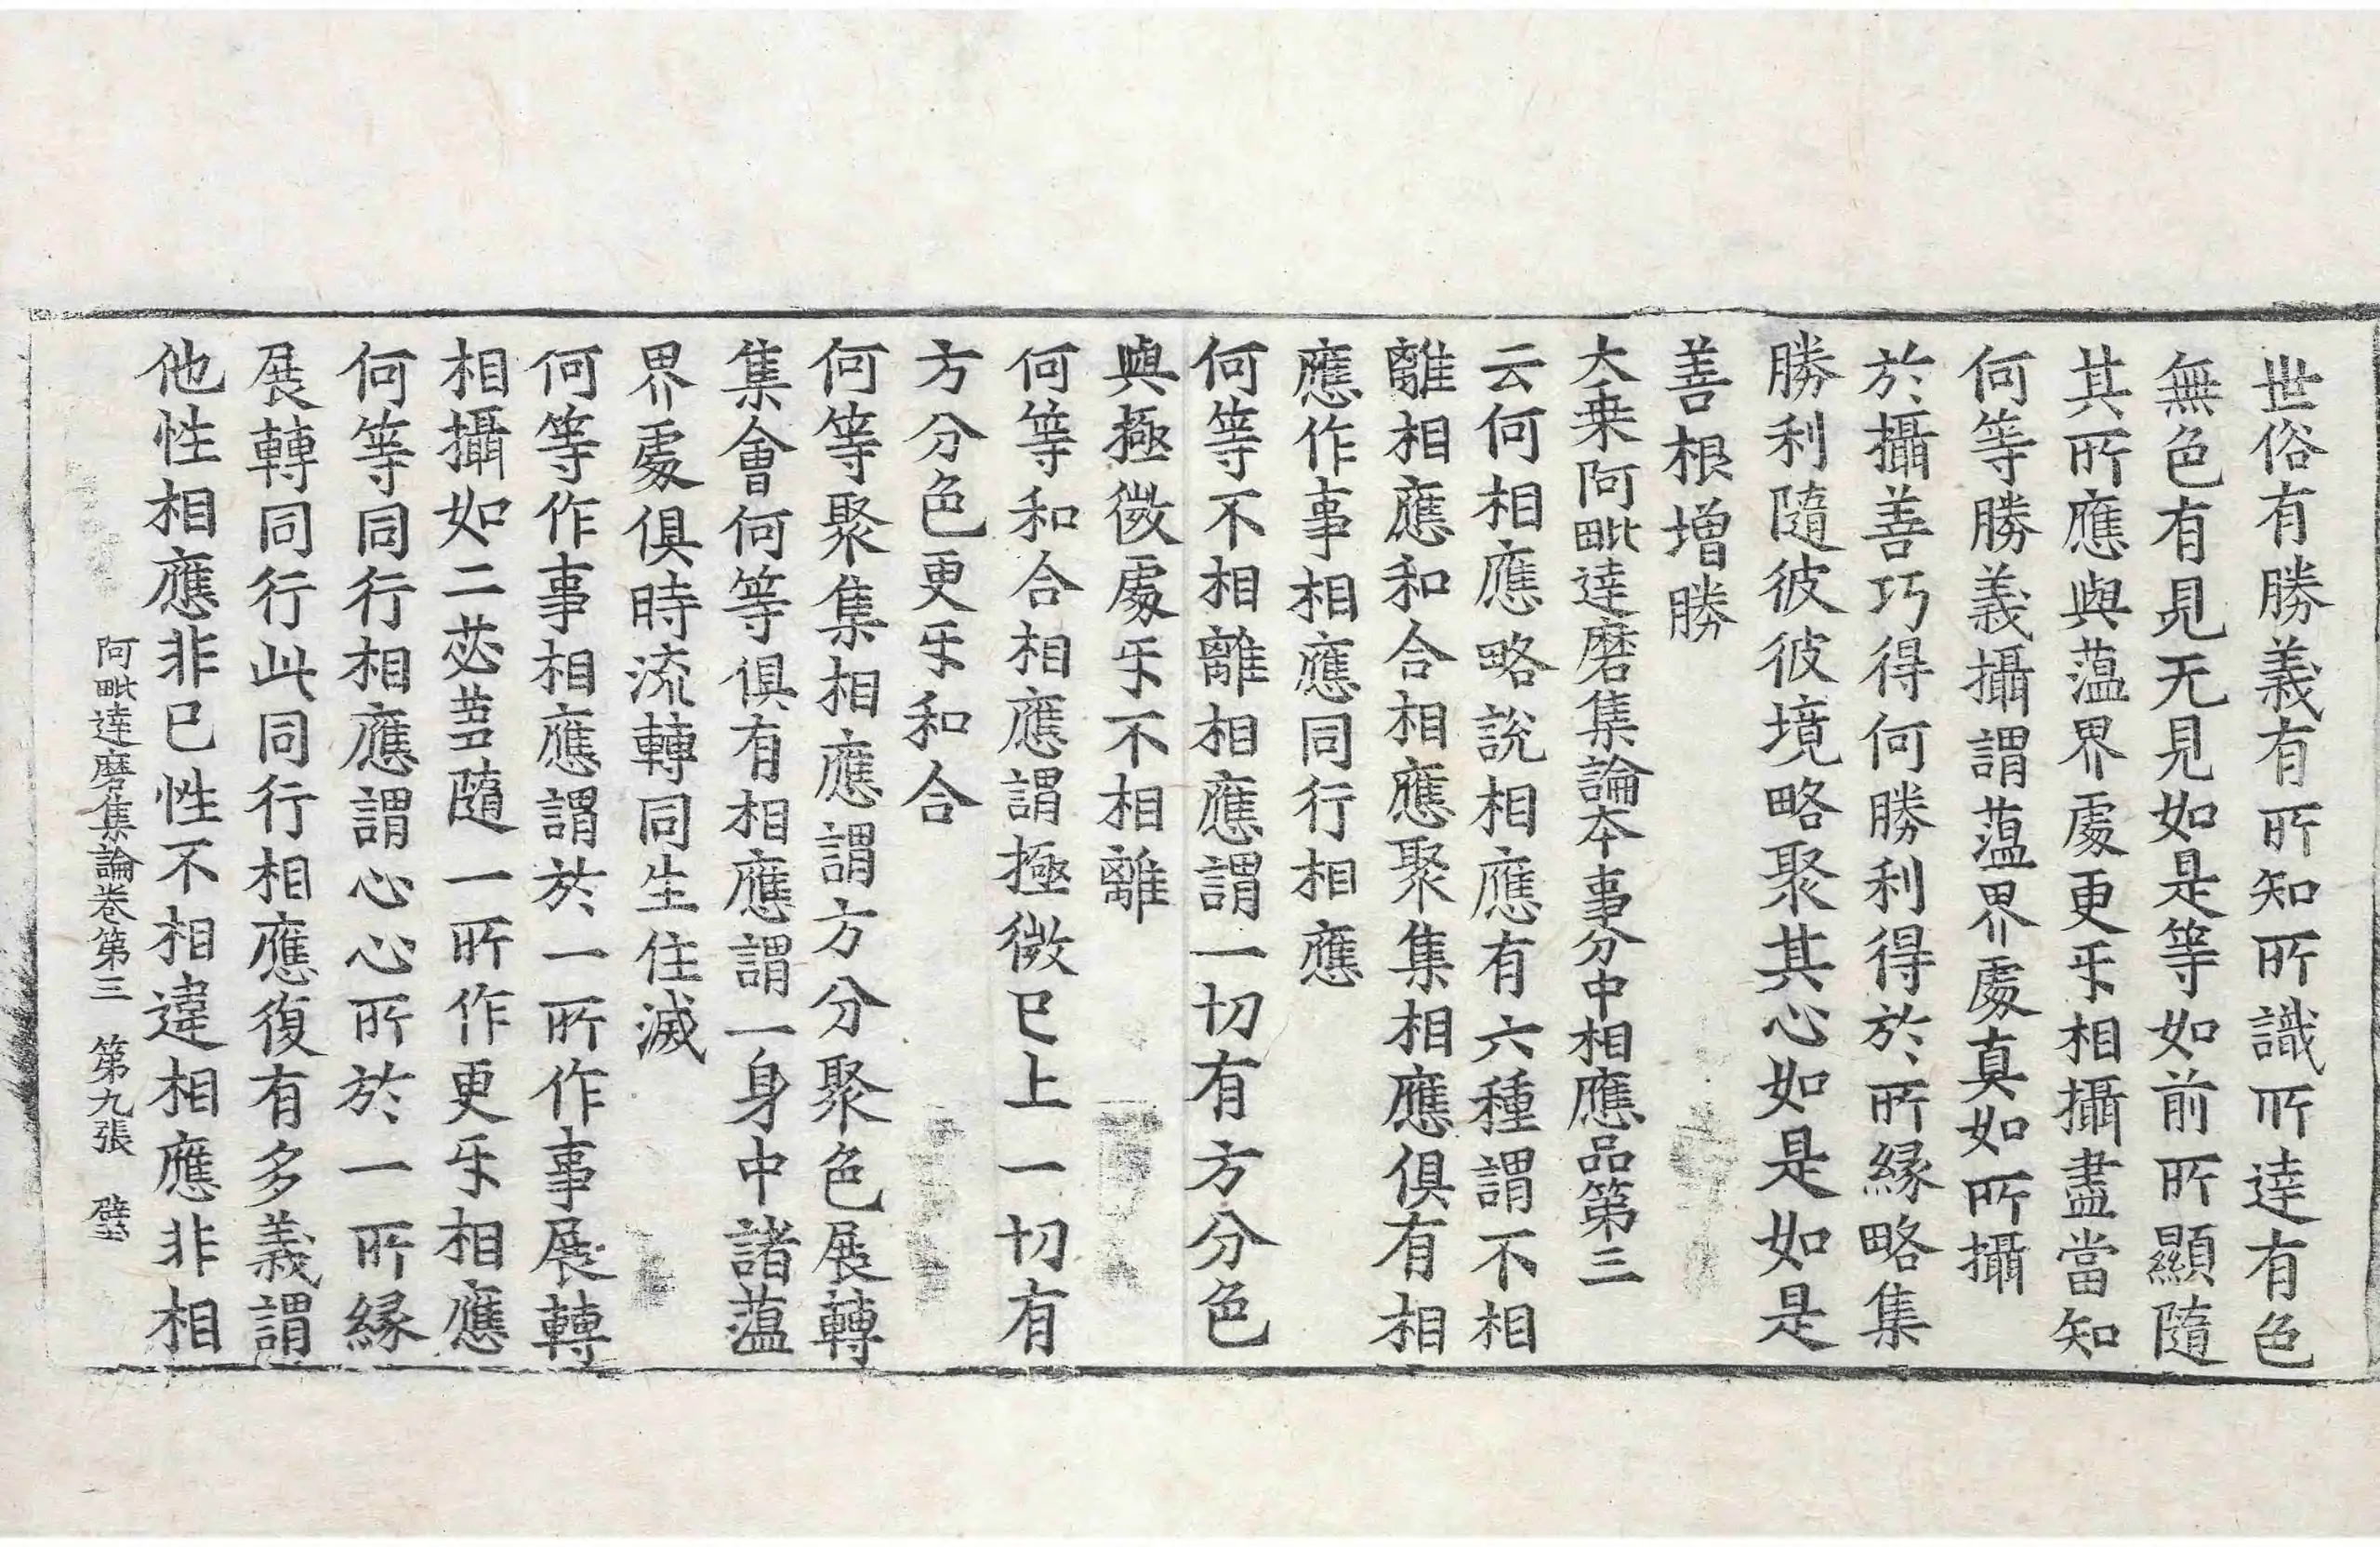 世俗有勝義有所知所識所達有色
無色有見无見如是等如前所顯隨
其所應與蕰界處更㸦相攝盡當知
何等勝義攝謂蕰界處真如所攝
於攝善巧得何勝利得於所緣略集
勝利隨彼彼境略聚其心如是如是
善根增勝
大乗阿毗達磨集論本事分中相應品第三
云何相應略說相應有六種謂不相
離相應和合相應聚集相應俱有相
應作事相應同行相應
何等不相離相應謂一切有方分色
與極微處㸦不相離
何等和合相應謂極微已上一切有
方分色更㸦和合
何等聚集相應謂方分聚色展轉
集會何等俱有相應謂一身中諸蕰
界處俱時流轉同生住滅
何等作事相應謂於一所作事展轉
相攝如二苾蒭隨一所作更㸦相應
何等同行相應謂心心所於一所緣
展轉同行此同行相應復有多義謂
他性相應非已性不相違相應非相
阿毗達磨集論卷第三 第九張 壁